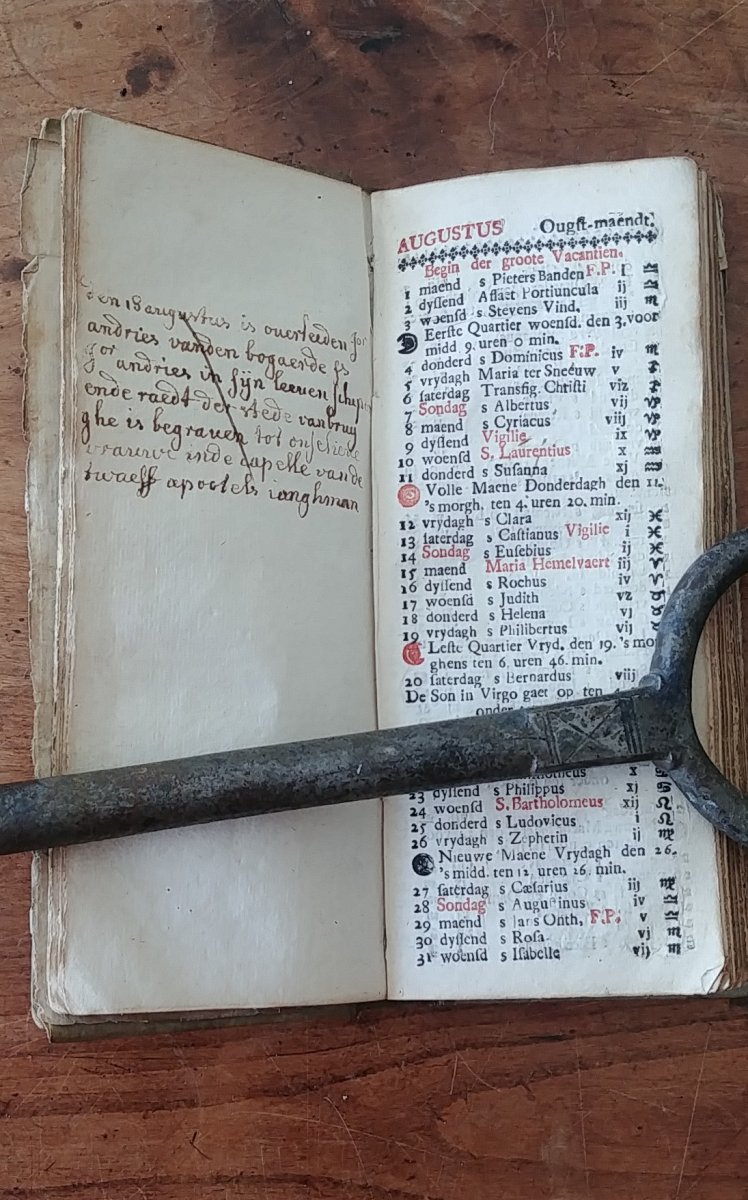 den 18 augustus is ouerleeden jor
andries vanden bogaerde fs
jor andries in sijn leeven schepen
ende raedt der stede van brug
ghe is begraven tot onse lieve
vrauwe inde capelle vande
twaelf apostels
AUGUSTUS Ougst-maendt.
Begin der groote Vacantien.
1 maend s Pieters Banden F.P. I ♎
2 dyssend Aflaet Portiuncula ij ♎
3 woensd s Stevens Vind. iij ♏
Eerste Quartier woensd. den 3. voor
midd 9. uren 0 min.
4 donderd s Dominicus F.P. iv ♏
5 vrydagh Maria ter Sneeuw v ♐
6 saterdag Transfig. Christi viz ♐
7 Sondag s Albertus vij ♑
8 maend s Cyriacus viij ♑
9 dyssend Vigilie ix ♑
10 woensd S. Laurentius x ♒
11 donderd s Susanna xj ♒
Volle Maene Donderdagh den 11.
's morgh. ten 4. uren 20. min.
12 vrydagh s Clara xij ♓
13 saterdag s Cassianus Vigilie i ♓
14 Sondag s Eusebius ij ♓
15 maend Maria Hemelvaert iij ♈
16 dyssend s Rochus iv ♈
17 woensd s Judith vz ♉
18 donderd s Helena vj ♉
19 vrydagh s Philibertus vij
Leste Quartier Vryd. den 19. 's mor
ghens ten 6. uren 46. min.
20 saterdag s Bernardus viij
De Son in Virgo gaet op ten
onder
x
23 dyssend s Philippus xj ♌
24 woensd S. Bartholomeus xij ♌
25 donderd s Ludovicus i ♌
26 vrydagh s Zepherin ij ♍
Nieuwe Maene Vrydagh den 26.
's midd. ten 12. uren 26. min.
27 saterdag s Cæsarius iij ♍
28 Sondag s Augustinus iv ♎
29 maend s Jans Onth. F.P. v ♎
30 dyssend s Rosa vj ♏
31 woensd s Isabelle vij ♏